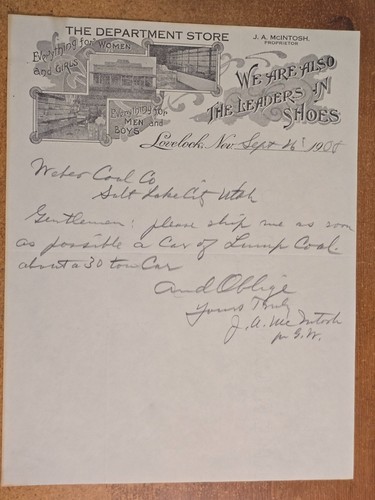 THE DEPARTMENT STORE
J. A. McINTOSH.
PROPRIETOR
Everything for WOMEN
and GIRLS
WE ARE ALSO
THE LEADERS IN
SHOES
Everything for
MEN and
BOYS
Lovelock, Nev. Sept 26 1908
Weber Coal Co
Salt Lake City Utah
Gentlemen: please ship me as soon
as possible a Car of Lump Coal
about a 30 ton Car
and Oblige
Yours Truly
J. A. McIntosh
per G.W.